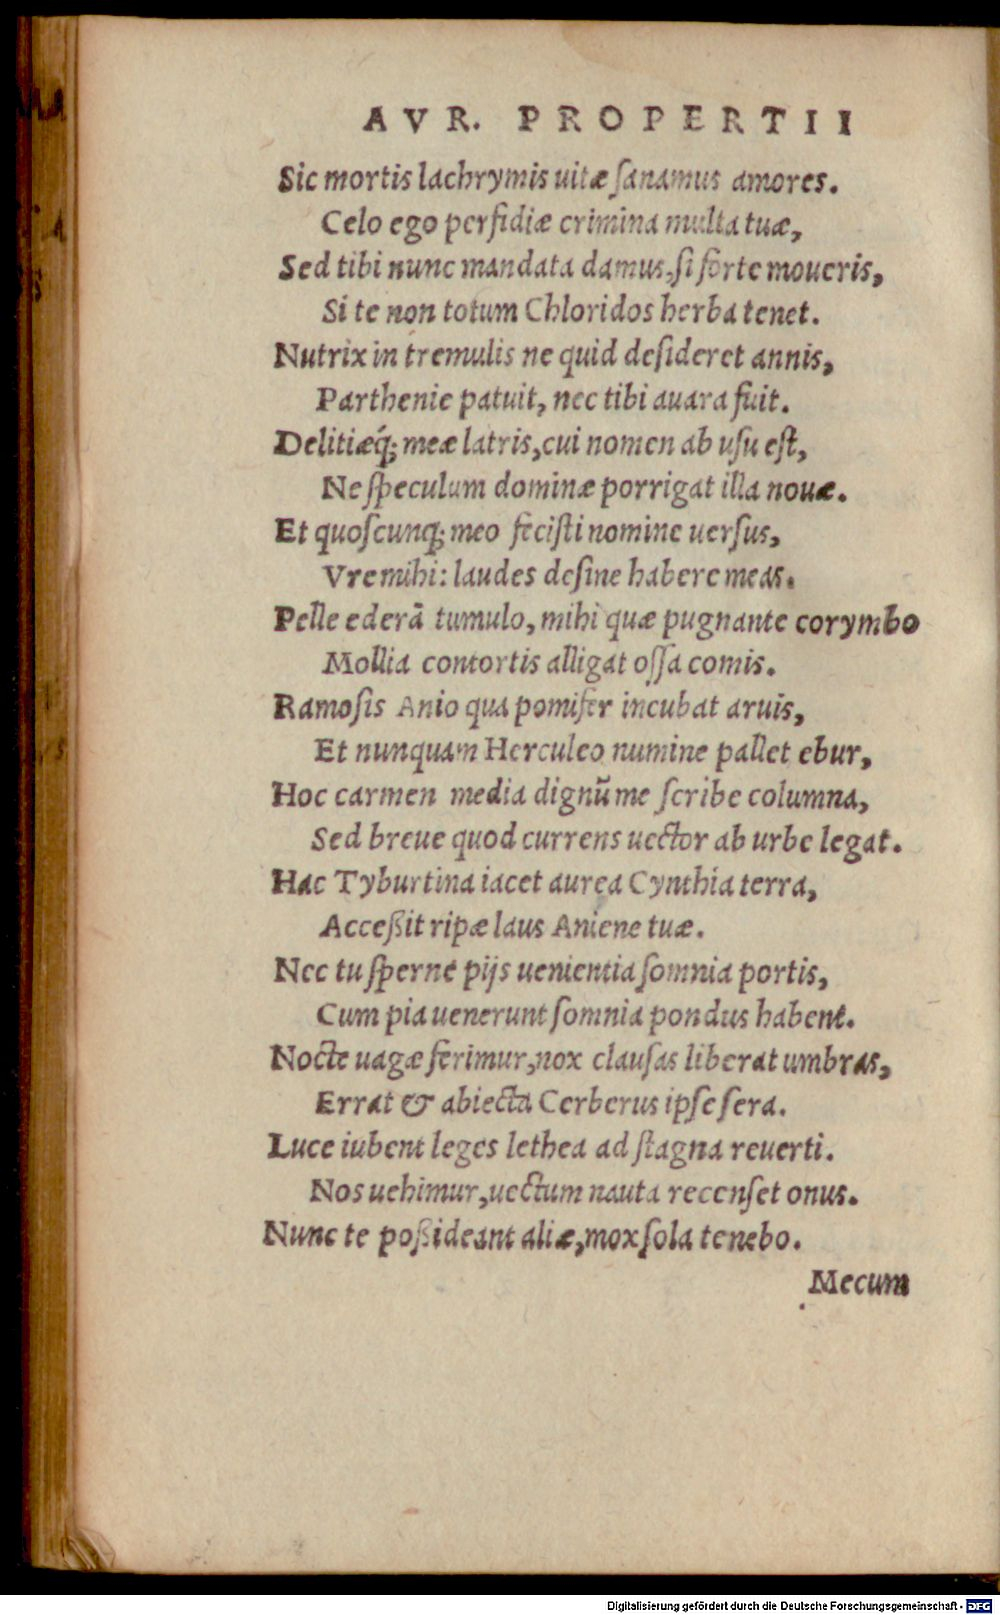 AVR. PROPERTII
Sic mortis lachrymis uitæ ſanamus amores.
Celo ego perfidiæ crimina multa tuæ,
Sed tibi nunc mandata damus, ſi forte moueris,
Si te non totum Chloridos herba tenet.
Nutrix in tremulis ne quid deſideret annis,
Parthenie patuit, nec tibi auara fuit.
Delitiæq́; meæ latris, cui nomen ab uſu eſt,
Ne ſpeculum dominæ porrigat illa nouæ.
Et quoſcunq; meo feciſti nomine uerſus,
Vre mihi: laudes deſine habere meas.
Pelle ederã tumulo, mihi quæ pugnante corymbo
Mollia contortis alligat oſſa comis.
Ramoſis Anio qua pomifer incubat aruis,
Et nunquam Herculeo numine pallet ebur,
Hoc carmen media dignũ me ſcribe columna,
Sed breue quod currens uector ab urbe legat.
Hac Tyburtina iacet aurea Cynthia terra,
Acceßit ripæ laus Aniene tuæ.
Nec tu ſperne pijs uenientia ſomnia portis,
Cum pia uenerunt ſomnia pondus habent.
Nocte uagæ ferimur, nox clauſas liberat umbras,
Errat & abiecta Cerberus ipſe ſera.
Luce iubent leges lethea ad ſtagna reuerti.
Nos uehimur, uectum nauta recenſet onus.
Nunc te poßideant aliæ, mox ſola tenebo.
Mecum
Digitalisierung gefördert durch die Deutsche Forschungsgemeinschaft - DFG